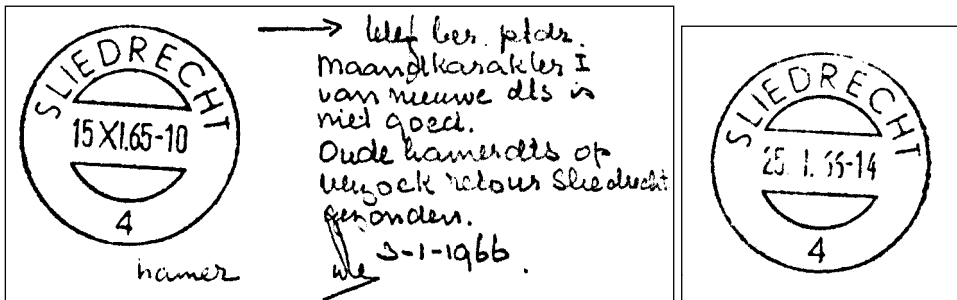 SLIEDRECHT
15 XI.65-10
4
hamer
ber.
Maandkarakter I
van nieuwe dts is
niet goed.
Oude hamerdts op
verzoek retour Sliedrecht
gezonden.
3-1-1966
SLIEDRECHT
25. I. 66-14
4